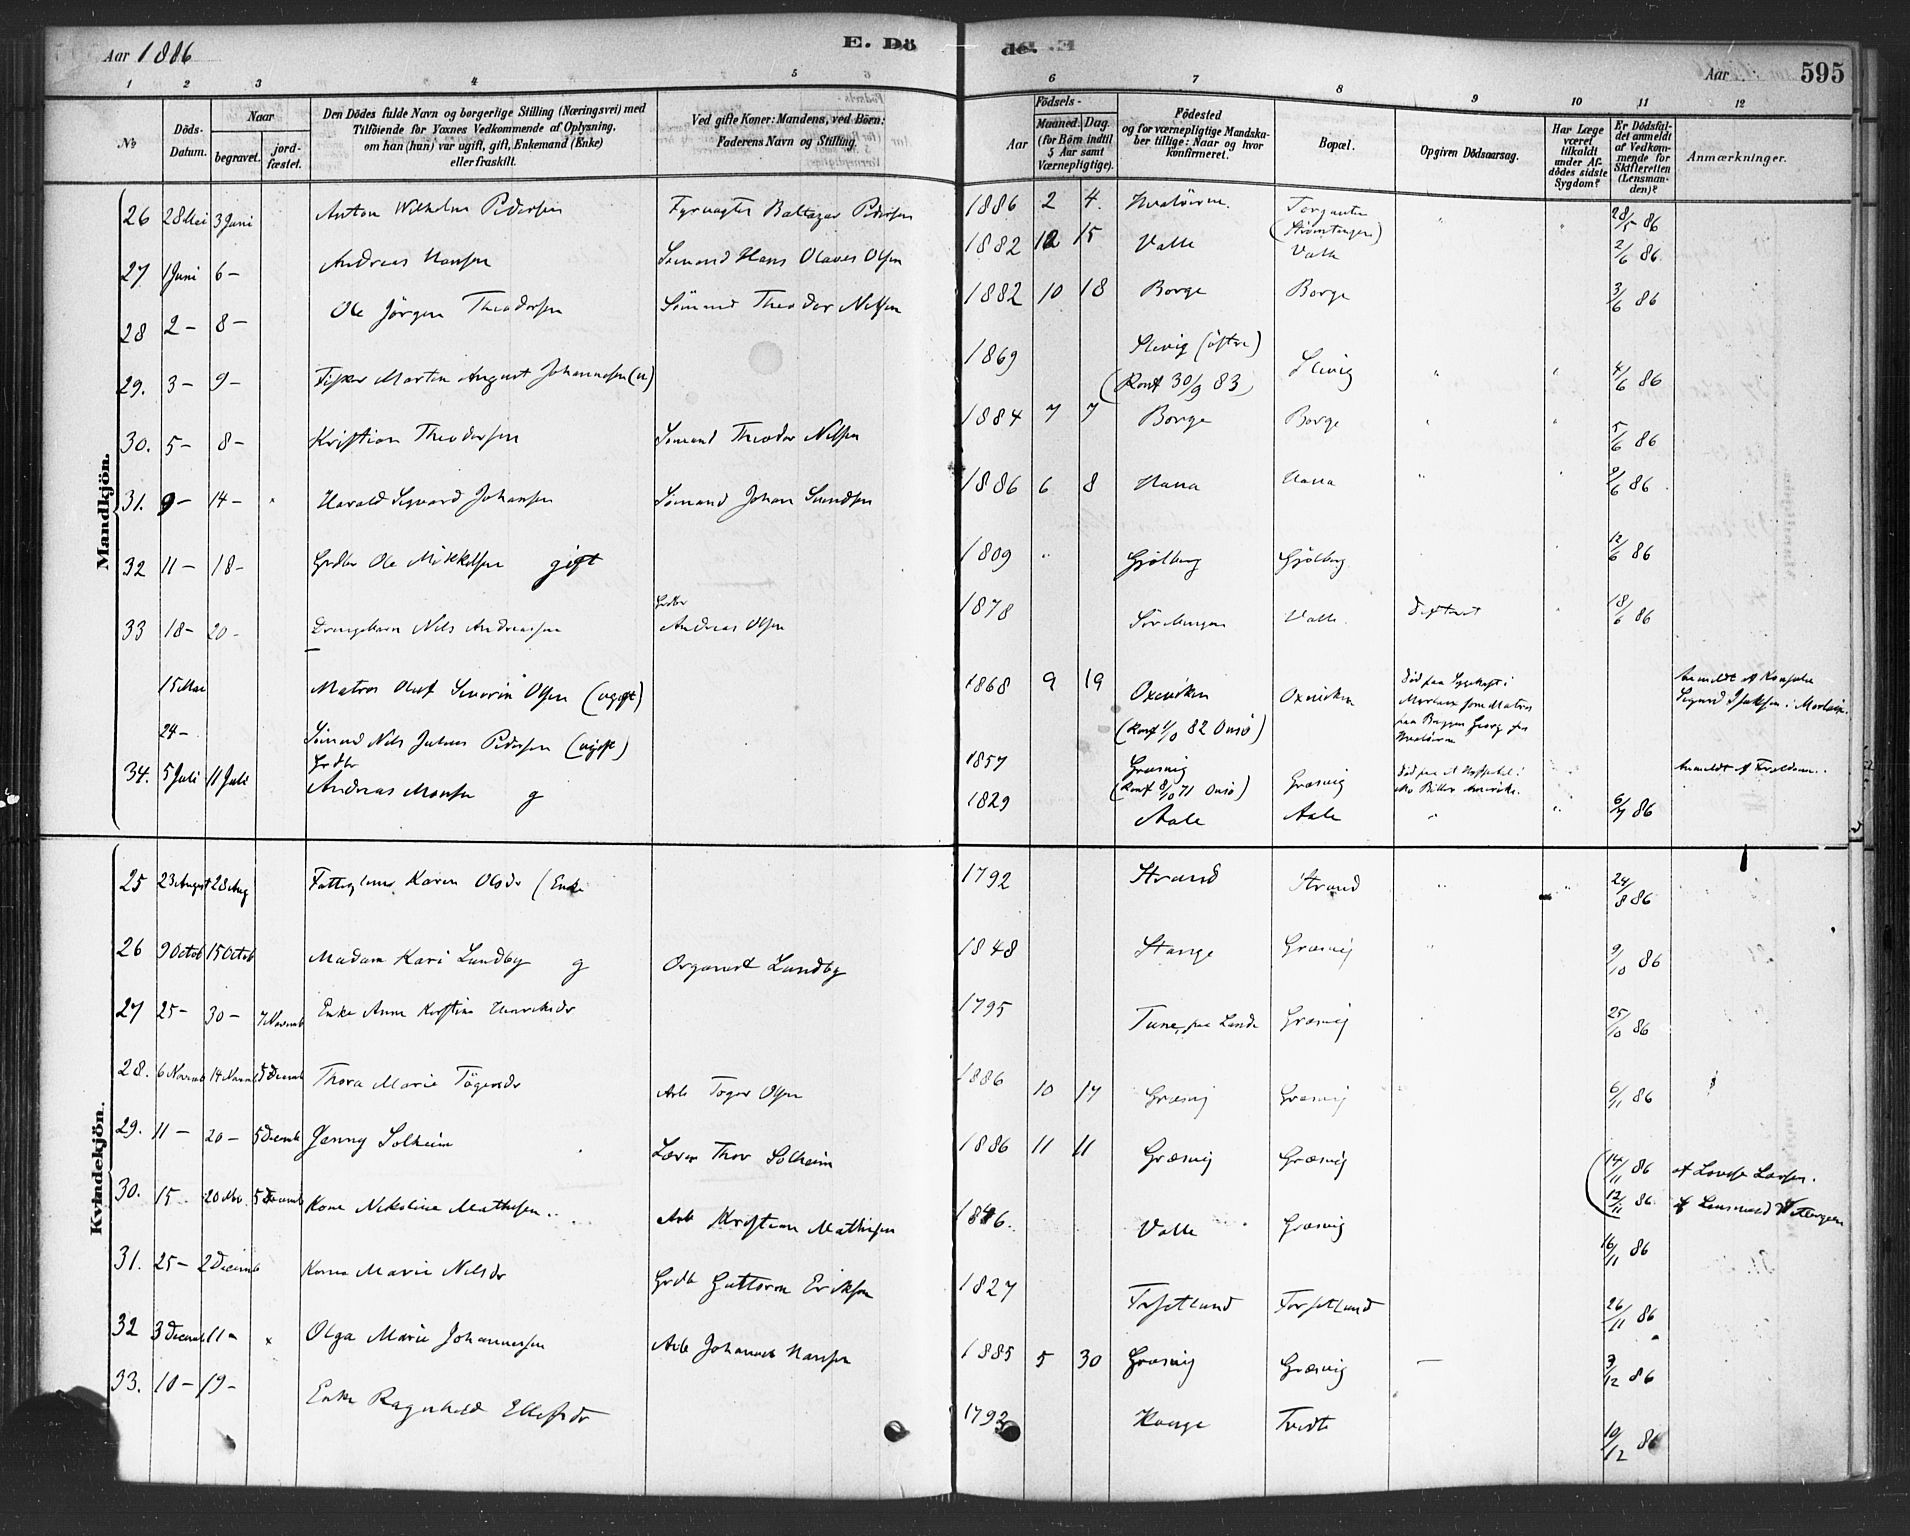 Aar 1886 E. Döde. Aar 595
1 2 3 4 5 6 7 8 9 10 11 12
No
Döds-Datum.
Naar
begravet.
jordfæstet.
Den Dödes fulde Navn og borgerlige Stilling (Næringsvei) med
Tilföiende for Voxnes Vedkommende af Oplysning,
om han (hun) var ugift, gift, Enkemand (Enke)
eller fraskilt.
Ved gifte Koner: Mandens, ved Börn:
Faderens Navn og Stilling.
Födsels-
Aar
Maaned. Dag.
(for Börn indtil
5 Aar samt
Værnepligtige).
Födested
og for værnepligtige Mandska-
ber tillige: Naar og hvor
konfirmeret.
Bopæl.
Opgiven Dödsaarsag.
Har Læge
været
tilkaldt
under Af-
dödes sidste
Sygdom?
Er Dödsfal-
det anmeldt
af Vedkom-
mende for
Skifteretten
(Lensman-
den)?
Anmærkninger.
Mandkjön.
26 28 Mai 3 Juni Anton Wilhelm Pedersen Fyrvagter Baltazar Pedersen 1886 2 4. Torgauten (Strømtangen) 28/5 86
27 1 Juni 6 – Andreas Hansen Sømand Hans Olaves Olsen 1882 12 15 Valle Valle 2/6 86
28 2 – 8 – Ole Jörgen Theodorsen Sömand Theodor Nilsen 1882 10 18 Borge Borge 3/6 86
29. 3 – 9 – Fisker Martin August Johannesen (u) 1869 Slevig (östre) (Konf 30/9 83) Slevig 4/6 86
30. 5 – 8 – Kristian Theodorsen Sømand Theodor Nilsen 1884 7 7 Borge Borge 5/6 86
31. 9 – 14 – Harald Sigvard Johansen Sømand Johan 1886 6 8 9/6 86
32 11 – 18 – Grdbr Ole Mikkelsen gift 1809 Gjølberg Gjølberg 12/6 86
33 18 – 20 – Nils Andreassen Grdbr Andreas Olsen 1878 Valle 18/6 86
15 Mai Matros Oluf Severin Olsen (ugift) 1868 9 19 Oxeviken (Konf 1/10 82 Onsö) Oxeviken Død paa i som Matros paa Georg fra Anmeldt af
24 – Sømand Nils Julius Pedersen (ugift) 1857 Græsvig (Konf 8/10 71 Onsö) Græsvig Død paa et Hospital i Anmeldt af
34. 5 Juli 11 Juli Grdbr Andreas Monsen g 1829 Aale Aale 6/7 86
Kvindekjön.
25 23 August 28 Aug Karen Olsdr (Enke 1792 Strand Strand 24/8 86
26 9 Octob 15 Octob Madam Kari Lundby g Organist Lundby 1848 Stange Græsvig 9/10 86
27 25 – 30 – 7 Novemb Enke Anne Kirstine Henriksdr 1795 Tune, paa Lande Græsvig 25/10 86
28. 6 Novemb 14 Novemb 5 Decemb Thora Marie Tögersdr Arb Toger Olsen 1886 10 17 Græsvig Græsvig 6/11 86
29. 11 – 20 – 5 Decemb Jenny Solheim Lærer Thor Solheim 1886 11 11 Græsvig Græsvig (14/11 86 af Larsen.
30. 15 20 Nov. 5 Decemb Kone Nikoline Mathisen Arb Kristian Mathisen 1846. Valle Græsvig (12/11 86 af Lensmand
16/11 86
31. 25 – 2 Decemb Kone Marie Nilsdr Grdb Guttorm Eriksen 1827 Torsetlund Torsetlund 26/11 86
32 3 Decemb 11 – Olga Marie Johannessen Arb Johannes Hansen 1885 5 30 Græsvig Græsvig – 3/12 86
33. 10 – 19 – Enke Ragnhild Ellefsdr 1792 Hauge Tvedte 10/12 86